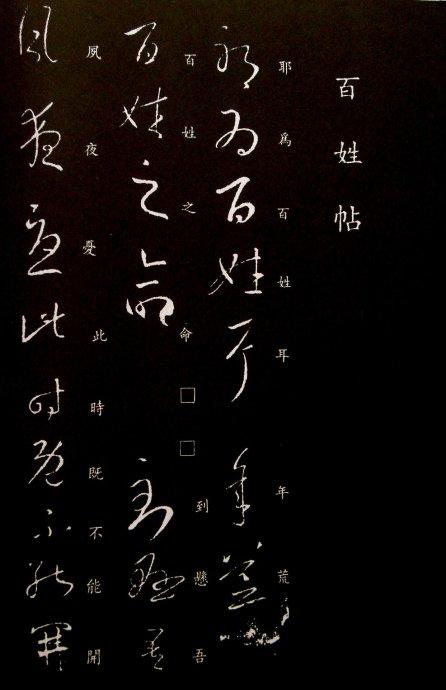 百姓帖
耶為百姓耳年荒
百姓之命□□到懸吾
夙夜憂此時既不能開